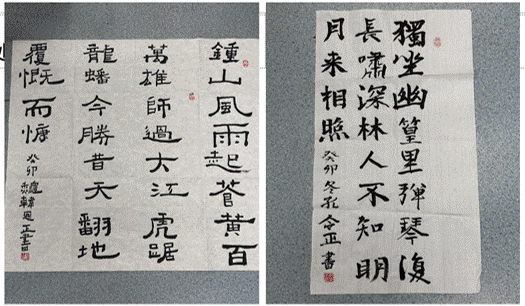 鍾山風雨起蒼黃百
萬雄師過大江虎踞
龍蟠今勝昔天翻地
覆慨而慷 癸卯 正書
獨坐幽篁里彈琴復
長嘯深林人不知明
月来相照 癸卯冬 令正書